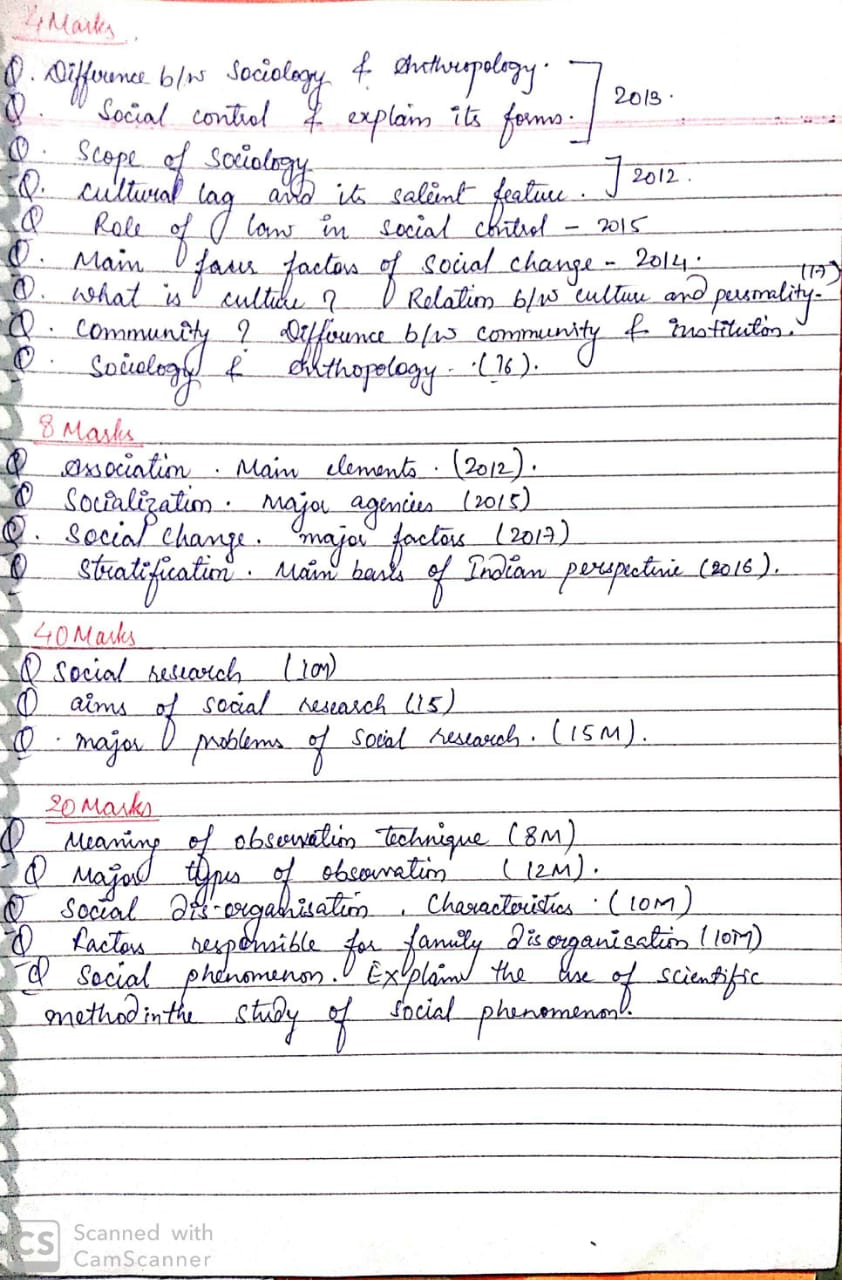 4 Marks.
Q. Difference b/w Sociology & Anthropology. ] 2013.
Q. Social control & explain its forms.
Q. Scope of sociology ] 2012.
Q. cultural lag and its salient feature.
Q Role of law in social control - 2015
Q. Main four factors of social change - 2014.
Q. what is culture? Relation b/w culture and personality. (17)
Q. Community? Difference b/w community & institution.
Q. Sociology & Anthopology. (16).
8 Marks
Q Association. Main elements. (2012).
Q Socialization. Major agencies (2015)
Q. Social change. major factors (2017)
Q Stratification. Main basis of Indian perspective (2016).
40 Marks
Q Social research (10M)
Q aims of social research (15)
Q. major problems of social research. (15M).
20 Marks
Q Meaning of observation technique (8M)
Q Major types of observation (12M).
Q Social dis-organisation. Characteristics. (10M)
Q factors responsible for family disorganisation (10M)
Q Social phenomenon. Explain the use of scientific
method in the study of social phenomenon.
CS Scanned with
CamScanner